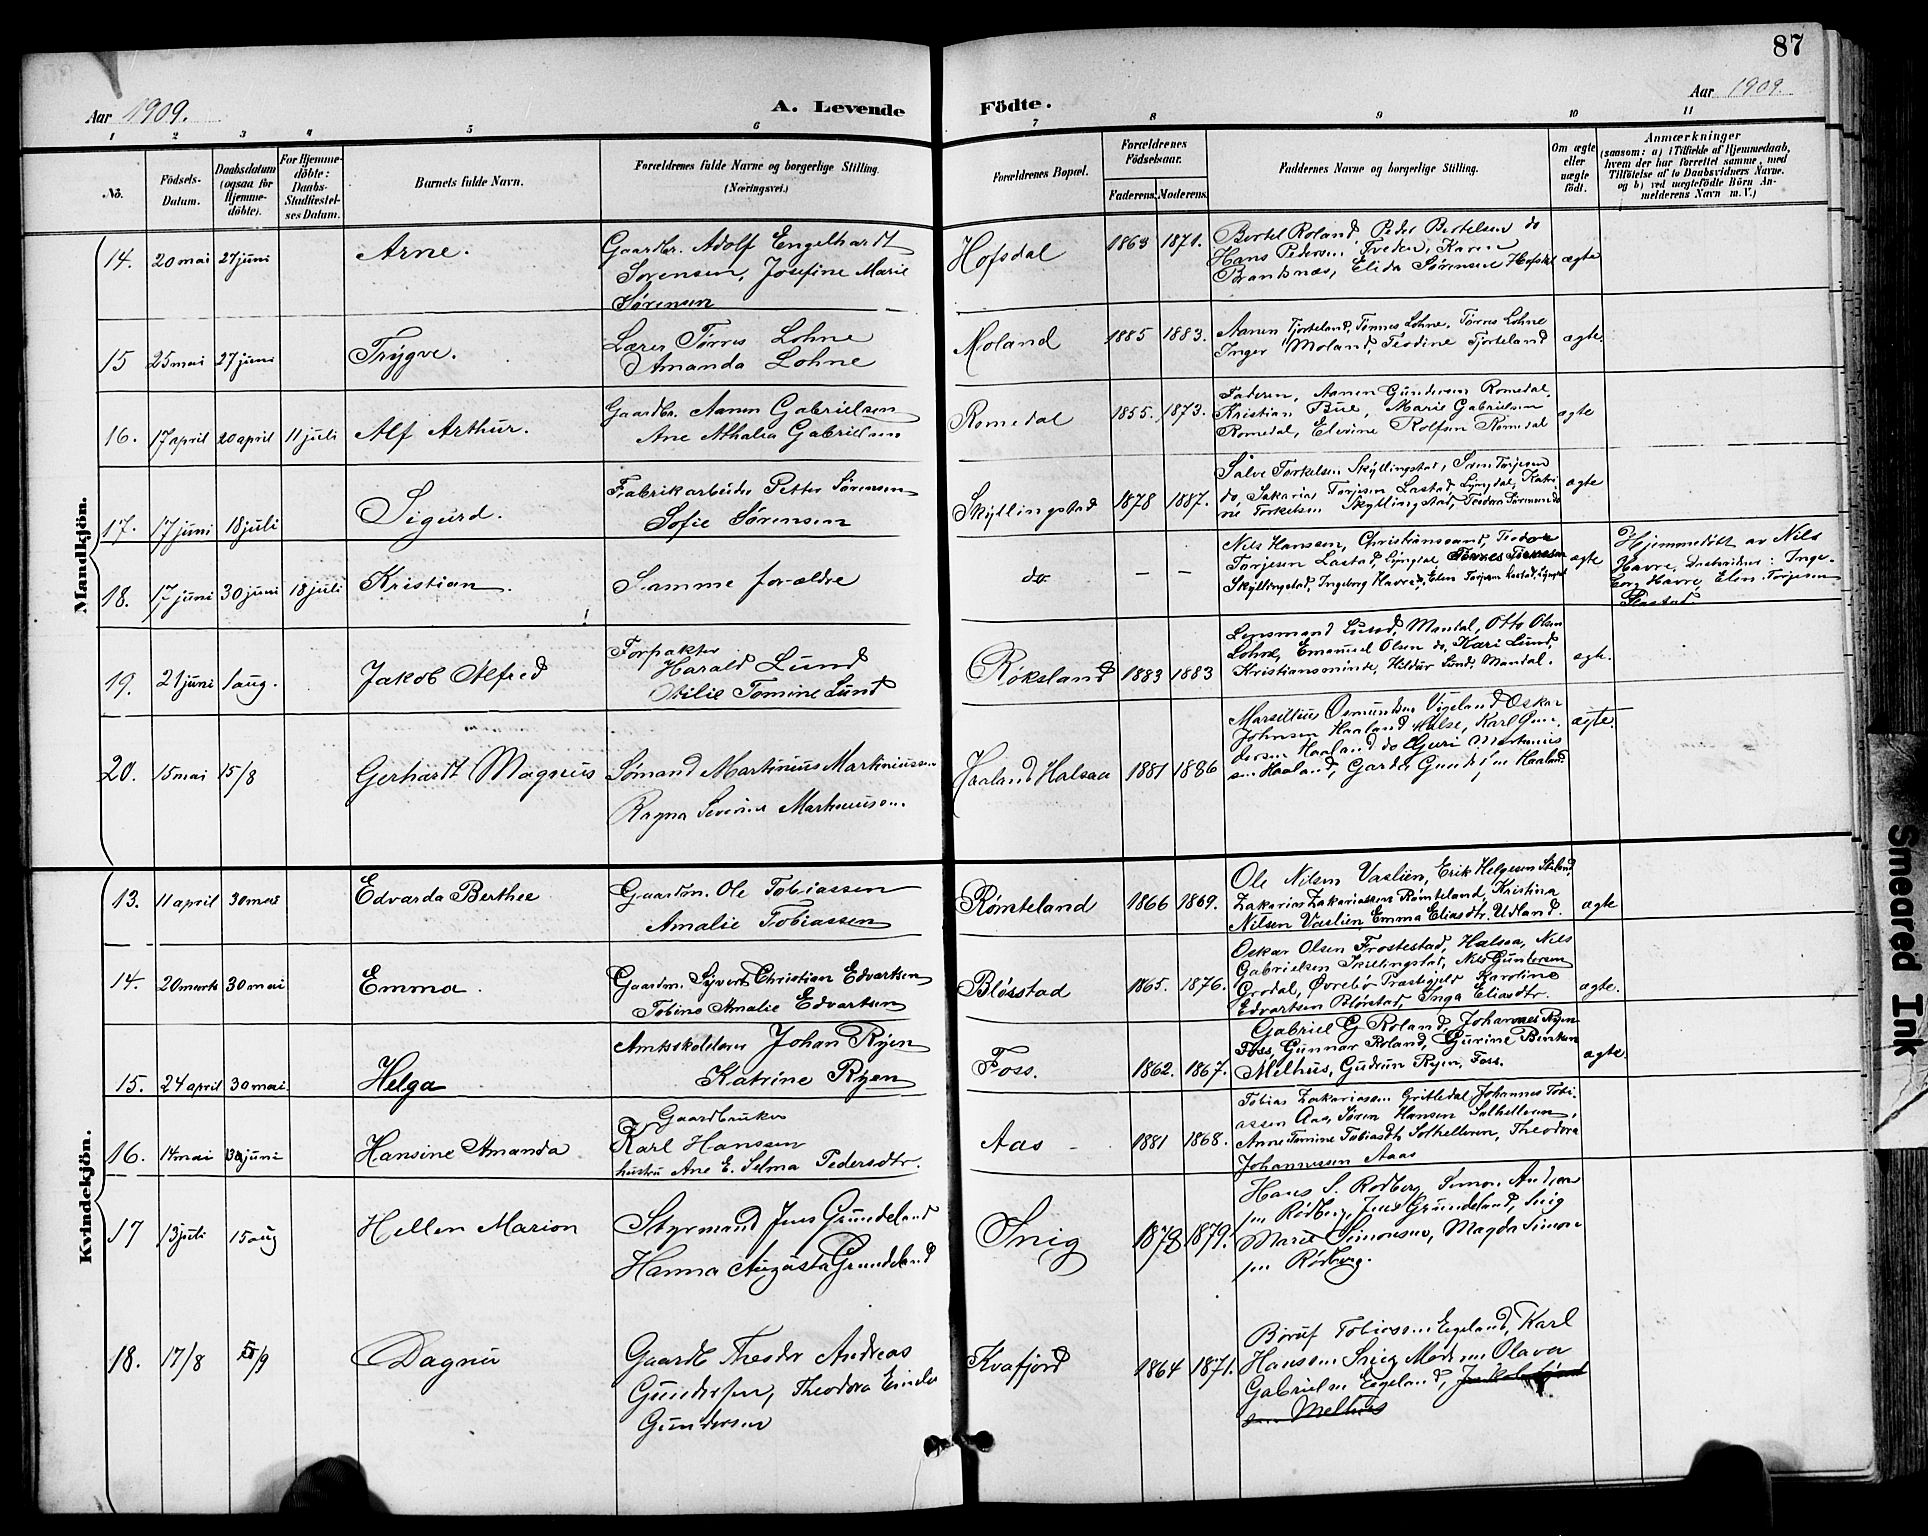 87
Aar 1909.
A. Levende Födte.
Aar 1909.
1 2 3 4 5 6 7 8 9 10 11
Nö.
Födsels-Datum.
Daabsdatum (ogsaa för Hjemmedöbte).
For Hjemmedöbte: Daabs-Stadfæstelses Datum.
Barnets fulde Navn.
Forældrenes fulde Navne og borgerlige Stilling. (Næringsvei.)
Forældrenes Bopæl.
Forældrenes Födselsaar.
Faderens. Moderens.
Faddernes Navne og borgerlige Stilling.
Om ægte eller uægte födt.
Anmærkninger
(saasom: a) i Tilfælde af Hjemmedaab, hvem der har forrettet samme, med Tilföielse af to Daabsvidners Navne, og b) ved uægtefödte Börn Anmelderens Navn m. V.)
Mandkjön.
14. 20 mai 27 juni Arne. Gaardbr. Adolf Engelhardt
Sørensen, Josefine Marie
Sørensen
Hofsdal 1863 1871.
Bertel Roland, Peder Bertelsen do
Hans Pedersen Tveden, Karen
Brandsnæs, Elida Sørensen Hofsdal ægte
15 25 mai 27 juni Trygve. Lærer Tørres Lohne
Amanda Lohne
Moland 1885 1883.
Aanen Tjorteland, Tønnes Lohne, Tørres Lohne
Inger Moland, Teodine Tjorteland ægte
16. 17 april 20 april 11 juli Alf Arthur. Gaardbr. Aanen Gabrielsen
Ane Athalia Gabrielsen
Romedal 1855. 1873.
Faderen, Aanen Gundersen Romedal,
Kristian Bue, Marie Gabrielsen
Romedal, Elevine Rolfsen Romedal ægte
17. 17 juni 18 juli Sigurd. Fabrikarbeider Petter Sørensen
Sofie Sørensen
Skyllingstad 1878 1887.
Salve Torkelsen Skyllingstad, Sven Torjesen
do, Sakarias Torjesen Lastad, Lyngdal, Katri-
ne Torkelsen Skyllingstad, Teodora Sørensen do ægte
18. 17 juni 30 juni 18 juli Kristian. Samme forældre
do — —
Nils Hanssen, Christianssand, Teodor
Torjesen Lastad, Lyngdal
Skyllingstad, Ingeborg Havre, Elen Torjesen Lastad, Lyngdal ægte
Hjemmedøbt av Nils
Havre, Daabsvidner: Inge-
borg Havre, Elen Torjesen
Lastad.
19. 21 juni 1 aug. Jakob Alfred Forpakter
Harald Lund
Otilie Tomine Lund
Røksland 1883 1883
Lensmand Lund, Mandal, Otto Olsen
Lohne, Emanuel Olsen do, Kari Lund,
Kristiansminde, Hildur Lund, Mandal. ægte.
20. 15 mai 15/8 Gerhardt Magnus Sømand Martinius Martiniussen
Ragna Severine Martiniussen.
Haaland Halsaa 1881 1886
Marselius Osmundsen Vigeland Oskar
Johnsen Haaland Halse, Karl Gun-
dersen Haaland do Guri Martinius-
sen Haaland, Garda Gundersen Haaland ægte.
Kvindekjön.
13. 11 april 30 mai Edvarda Berthee Gaardm. Ole Tobiassen
Amalie Tobiassen
Rømteland 1866 1869.
Ole Nilsen Vaslien, Erik Helgesen
Zakarias Zakariassen Rømteland, Kristina
Nilsen Vaslien, Emma Eliasdtr. Udland. ægte
14. 20 marts 30 mai Emma. Gaardm. Syvert Christian Edvartsen
Tobine Amalie Edvartsen
Bløsstad 1865. 1876.
Oskar Olsen Frostestad, Halsaa, Nils
Gabrielsen Skillingstad, Nils Gundersen
Grodal, Øvrebø Præstegjeld Karoline
Edvartsen Bløsstad, Inga Eliasdtr. ægte.
15. 24 april 30 mai. Helga Amtsskolelærer Johan Ryen
Katrine Ryen
Foss. 1862. 1867.
Gabriel G Roland, Johannes Ryen
Foss, Gunnar Roland, Gurine
Melhus, Gudrun Ryen, Foss. ægte.
16. 14 mai juni Hansine Amanda Gaardbruker
Karl Hanssen
hustru Ane E. Selma Pedersdtr.
Aas 1881 1868.
Tobias Zakariassen Gritledal, Johannes Tobi-
assen Aas, Søren Hansen Solhelleren,
Anne Tomine Tobiasdtr. Solhelleren, Theodora
Johannessen Aaas
17 13 juli 15 aug Hellen Marion Styrmand Jens Grundeland
Hanna Augusta Grundeland
Snig 1878 1879.
Hans S. Rødberg, Simon Andrea-
sen Rødberg, Jens Grundeland, Snig
Marie Simonsen, Magda Simon-
sen Rødberg.
18. 17/8 /9 Dagny Gaardb Theodor Andreas
Gundersen, Theodora Emilie
Gundersen
Kvafjord 1864 1871.
Børuf Tobiassen Eigeland, Karl
Hanssen Snig Moderen Olava
Gabrielsen Eigeland,
Melhus
Smeared Ink